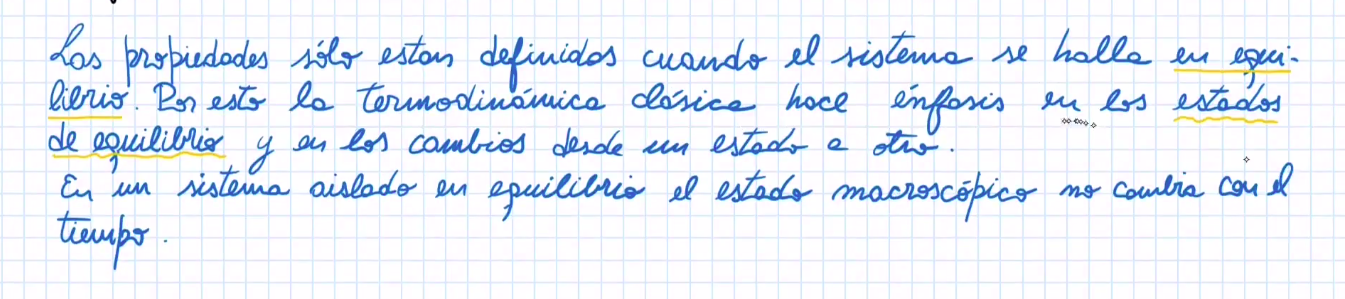 Las propiedades sólo estan definidas cuando el sistema se halla en equi-
librio. Por esto la termodinámica clásica hace énfasis en los estados
de equilibrio y en los cambios desde un estado a otro.
En un sistema aislado en equilibrio el estado macroscópico no cambia con el
tiempo.